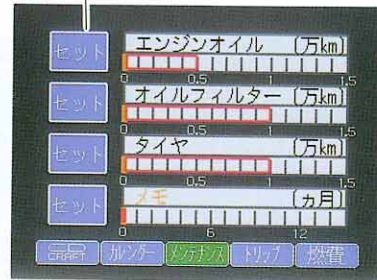 セット エンジンオイル [万km]
0 0.5 1 1.5
セット オイルフィルター [万km]
0 0.5 1 1.5
セット タイヤ [万km]
0 0.5 1 1.5
セット メモ [カ月]
0 6 12
CRAFT カレンダー メンテナンス トリップ 燃費